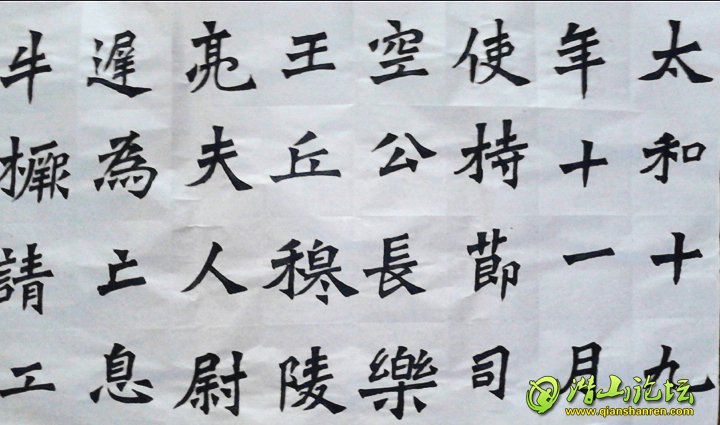 太和十九
年十一月
使持節司
空公長樂
王丘穆陵
亮夫人尉
遲為亡息
牛橛請工
潜山论坛
www.qianshanren.com